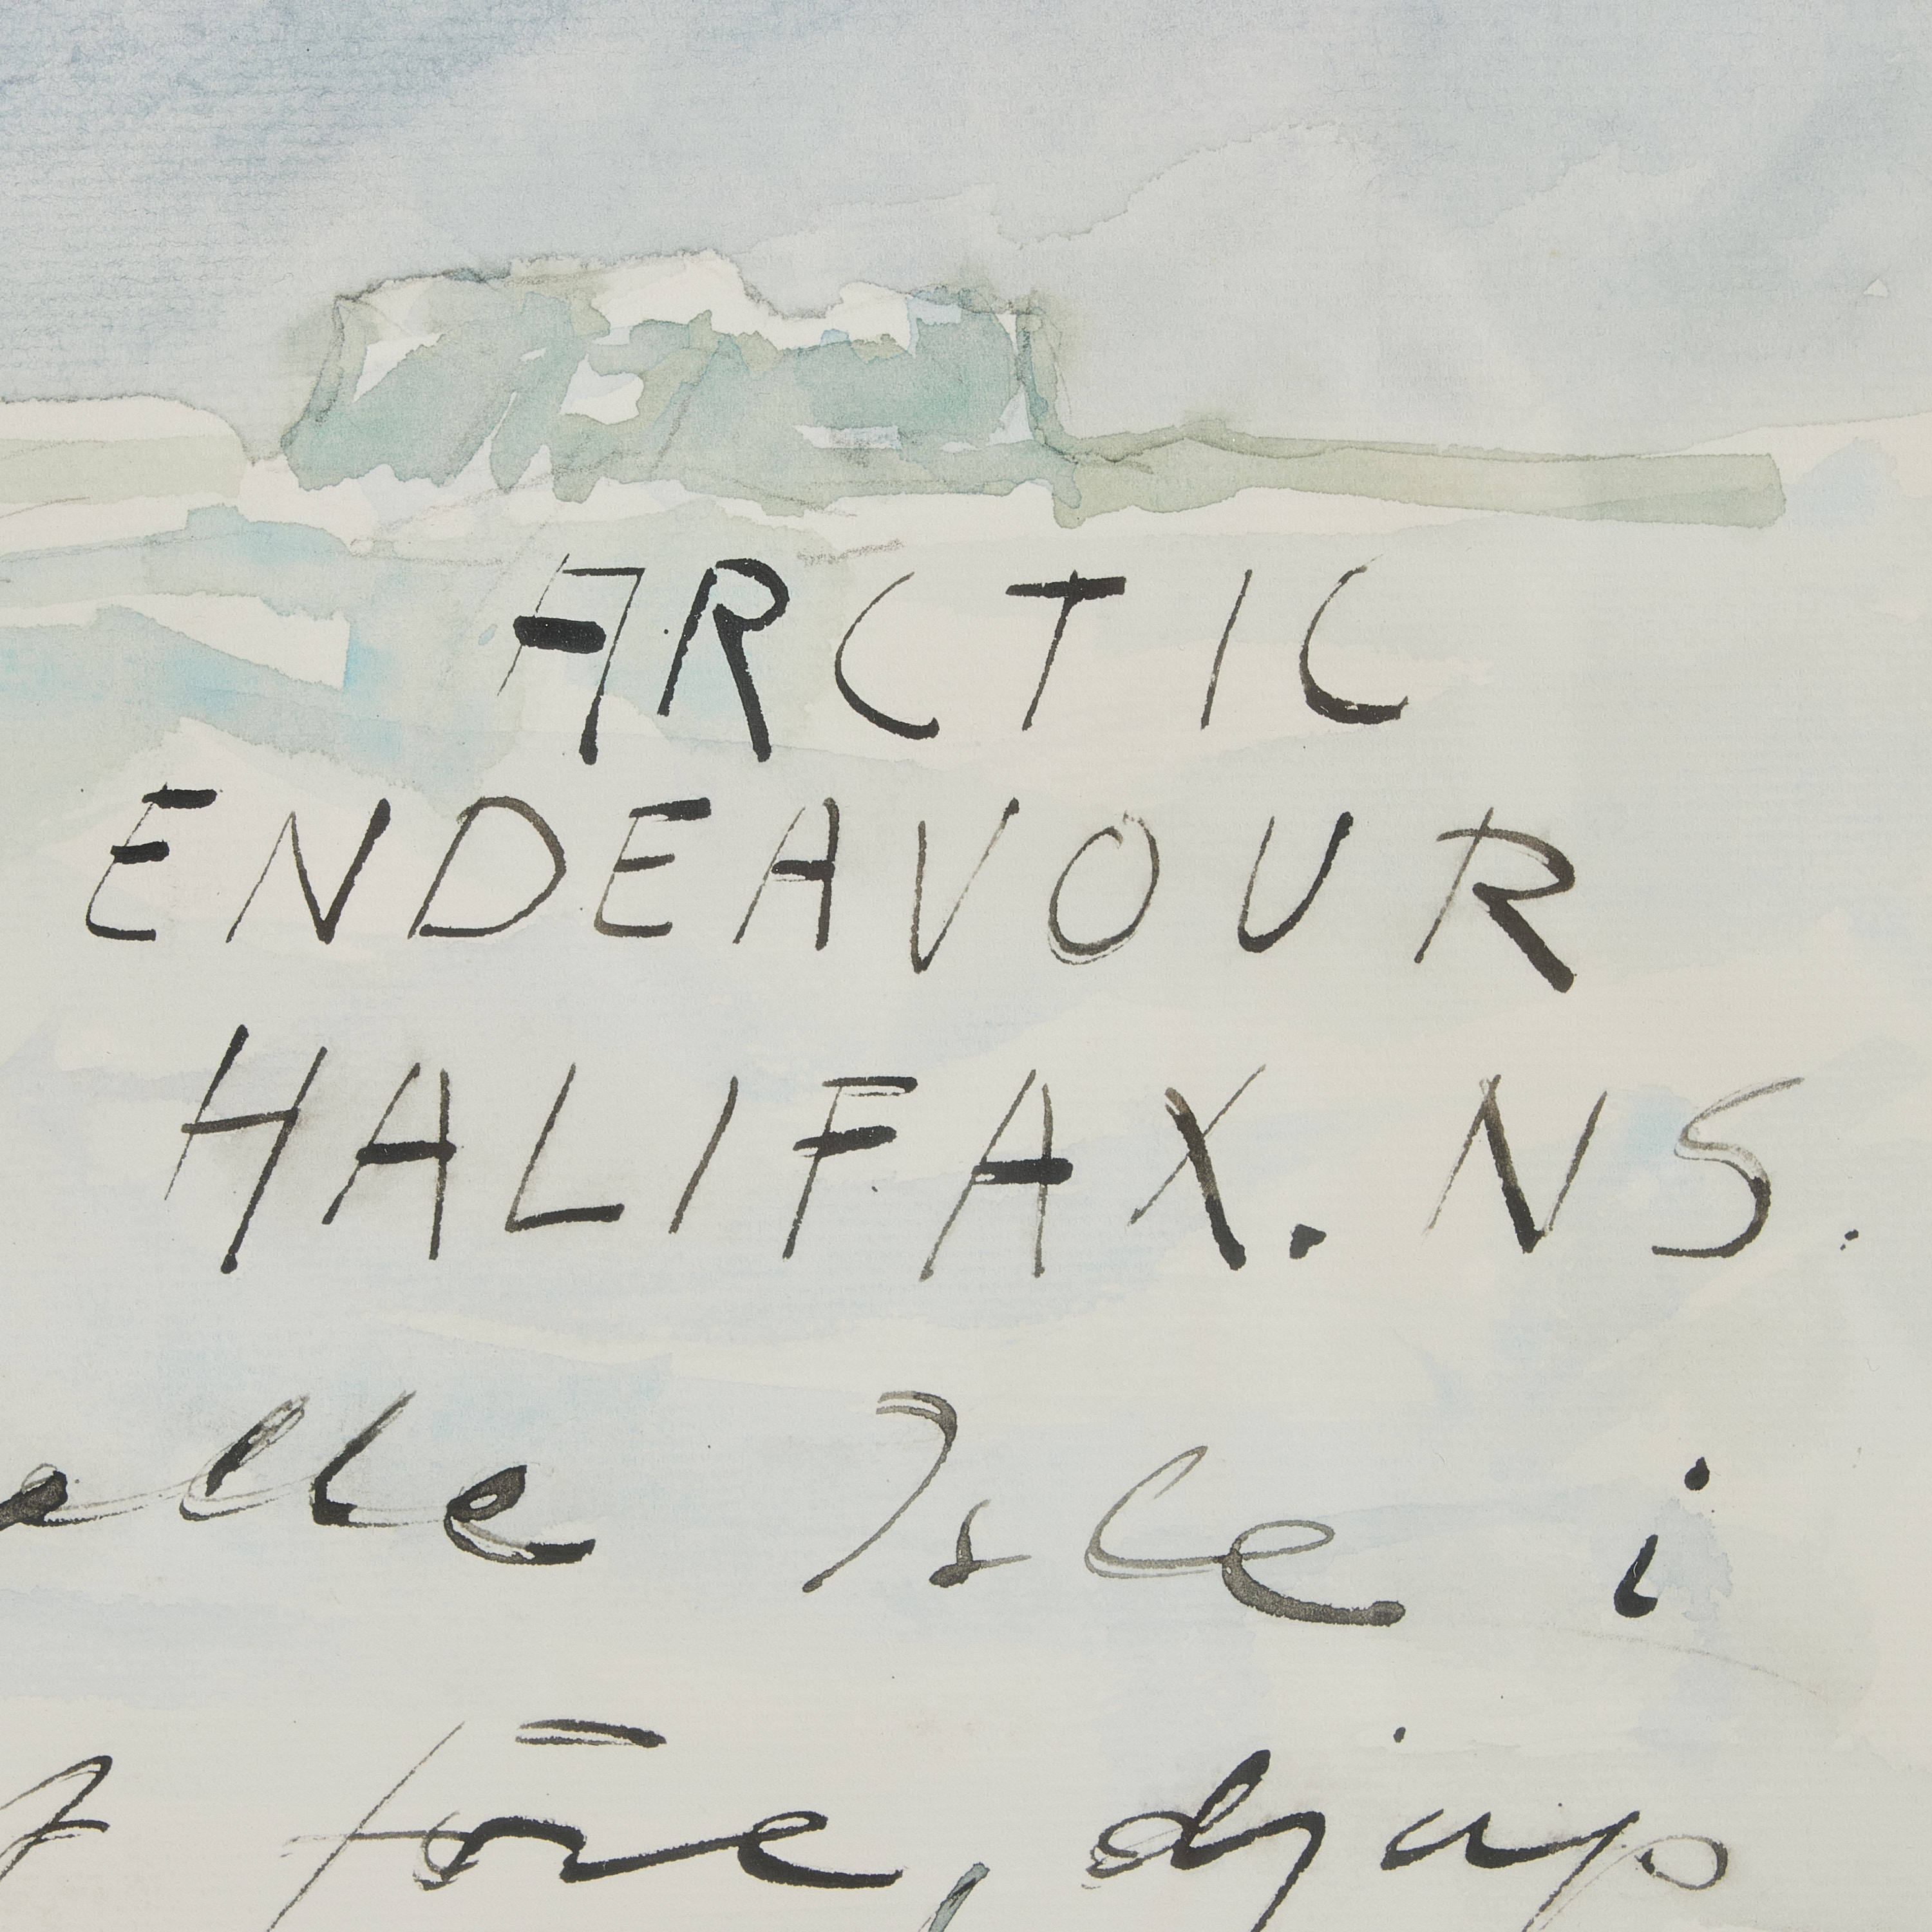 ARCTIC
ENDEAVOUR
HALIFAX. NS.
elle Isle i
före, djup